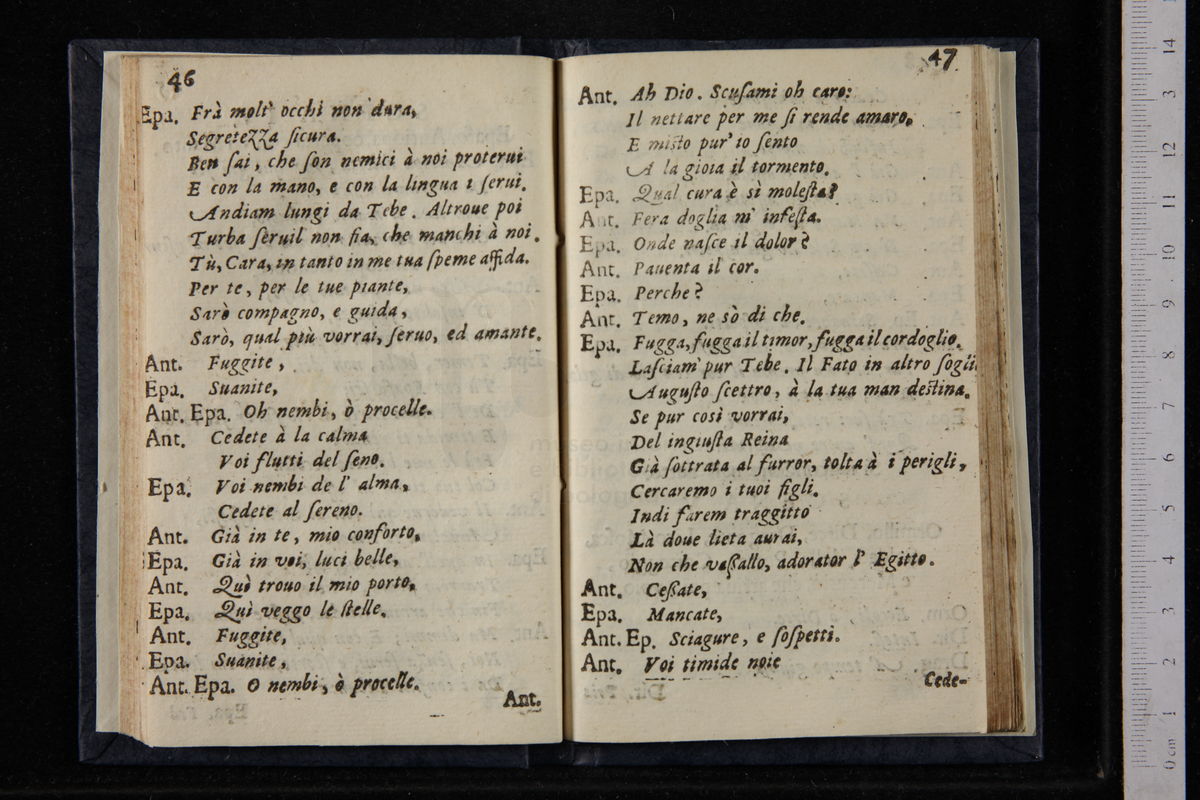 46
Epa. Frà molt' occhi non dura,
Segretezza ſicura.
Ben ſai, che ſon nemici à noi proterui
E con la mano, e con la lingua i ſerui.
Andiam lungi da Tebe. Altroue poi
Turba ſeruil non fia, che manchi à noi.
Tù, Cara, in tanto in me tua ſpeme affida.
Per te, per le tue piante,
Sarò compagno, e guida,
Sarò, qual più vorrai, ſeruo, ed amante.
Ant. Fuggite,
Epa. Suanite,
Ant. Epa. Oh nembi, ò procelle.
Ant. Cedete à la calma
Voi flutti del ſeno.
Epa. Voi nembi de l' alma,
Cedete al ſereno.
Ant. Già in te, mio conforto,
Epa. Già in voi, luci belle,
Ant. Quì trouo il mio porto,
Epa. Quì veggo le ſtelle.
Ant. Fuggite,
Epa. Suanite,
Ant. Epa. O nembi, ò procelle.
Ant.
47
Ant. Ah Dio. Scuſami oh caro:
Il nettare per me ſi rende amaro.
E miſto pur' io ſento
A la gioia il tormento.
Epa. Qual cura è sì moleſta?
Ant. Fera doglia m' infeſta.
Epa. Onde naſce il dolor?
Ant. Pauenta il cor.
Epa. Perche?
Ant. Temo, ne sò di che.
Epa. Fugga, fugga il timor, fugga il cordoglio.
Laſciam' pur Tebe. Il Fato in altro ſogli
Auguſto ſcettro, à la tua man deſtina.
Se pur così vorrai,
Del ingiuſta Reina
Già ſottrata al furror, tolta à i perigli,
Cercaremo i tuoi figli.
Indi farem traggitto
Là doue lieta aurai,
Non che vaſſallo, adorator l' Egitto.
Ant. Ceſſate,
Epa. Mancate,
Ant. Ep. Sciagure, e ſoſpetti.
Ant. Voi timide noie
Cede-
14
3
12
11
10
9
8
7
6
5
4
3
2
1
0 cm